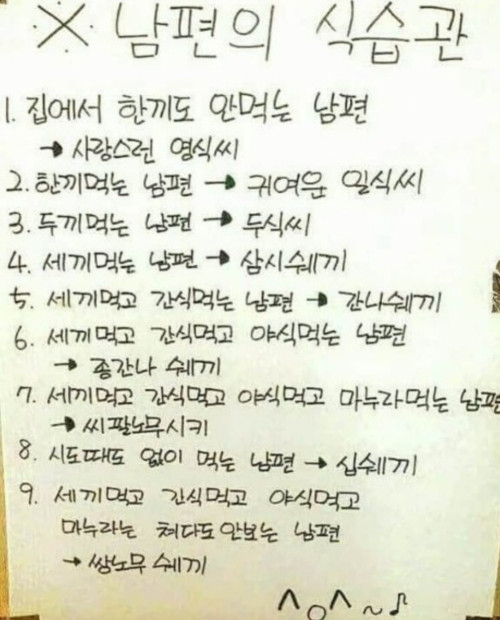 ※ 남편의 식습관
1. 집에서 한끼도 안먹는 남편
→ 사랑스런 영식씨
2. 한끼먹는 남편 → 귀여운 일식씨
3. 두끼먹는 남편 → 두식씨
4. 세끼먹는 남편 → 삼시쉐끼
5. 세끼먹고 간식먹는 남편 → 간나쉐끼
6. 세끼먹고 간식먹고 야식먹는 남편
→ 종간나 쉐끼
7. 세끼먹고 간식먹고 야식먹고 마누라먹는 남편
→ 씨팔노무시키
8. 시도때도 없이 먹는 남편 → 십쉐끼
9. 세끼먹고 간식먹고 야식먹고
마누라는 쳐다도안보는 남편
→ 쌍노무 쉐끼
^o^~♪